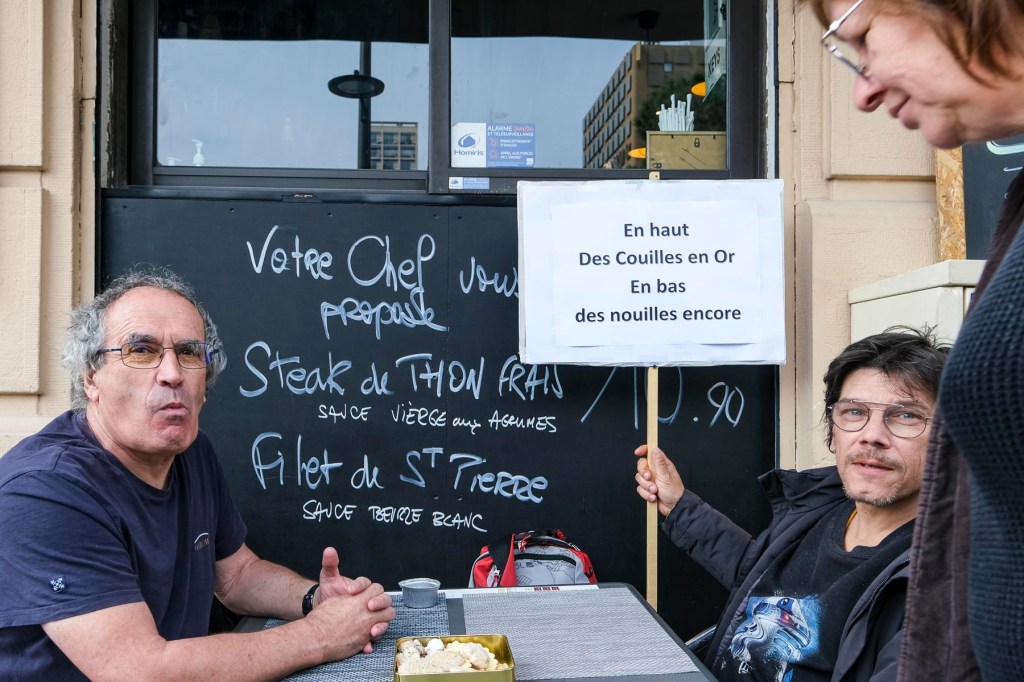 ALARME 24H/24
ET TÉLÉSURVEILLANCE
Homiris
En haut
Des Couilles en Or
En bas
des nouilles encore
Votre Chef vous
propose
Steak de THON FRAIS 10.90
SAUCE VIÈRGE aux AGRUMES
Filet de ST PIERRE
SAUCE BEURRE BLANC